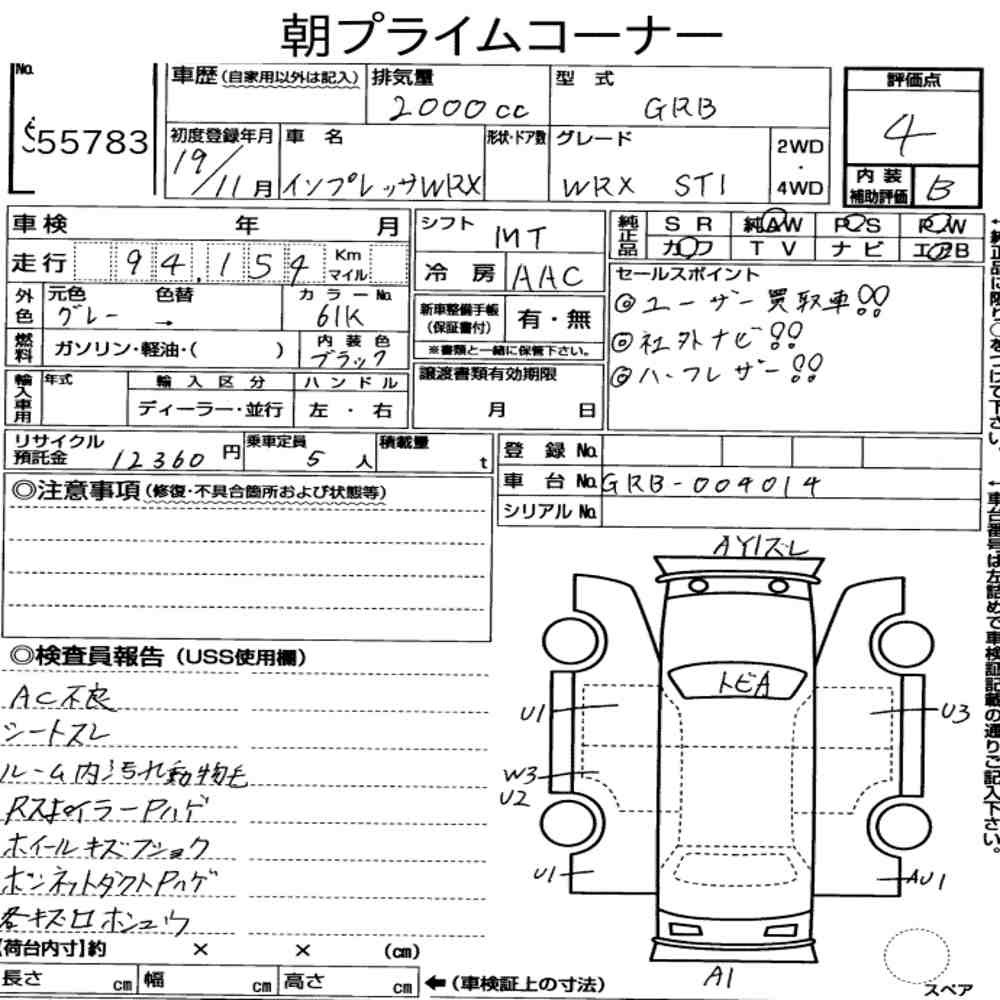 朝プライムコーナー
No. 55783
車歴(自家用以外は記入) 排気量 2000cc 型式 GRB
評価点 4
初度登録年月 19/11月 車名 インプレッサWRX 形状・ドア数 グレード WRX STI 2WD・4WD
内装補助評価 B
車検 年 月
走行 94,154 Km マイル
外色 元色 グレー 色替 → カラーNo. 61K
燃料 ガソリン・軽油・( ) 内装色 ブラック
輸入車用 年式 輸入区分 ディーラー・並行 ハンドル 左・右
シフト MT
冷房 AAC
新車整備手帳(保証書付) 有・無
※書類と一緒に保管下さい。
譲渡書類有効期限
月 日
純正品 SR 純AW PS PW
カワ TV ナビ エアB
セールスポイント
◎ユーザー買取車!!
◎社外ナビ!!
◎ハーフレザー!!
←純正品に限り○をつけて下さい。
リサイクル預託金 12360円 乗車定員 5人 積載量 t
登録No.
車台No. GRB-009014
シリアルNo.
←車台番号は左詰めで車検証記載の通りご記入下さい。
◎注意事項(修復・不具合箇所および状態等)
◎検査員報告(USS使用欄)
AC不良
シートスレ
ルーム内汚れ動物毛
RスポイラーPハゲ
ホイールキズフショク
ボンネットダクトPハゲ
各キズロホシュウ
AY1ズレ
トビA
U1
U3
W3
U2
U1
AU1
A1
スペア
【荷台内寸】約 × × (cm)
長さ cm 幅 cm 高さ cm ←(車検証上の寸法)